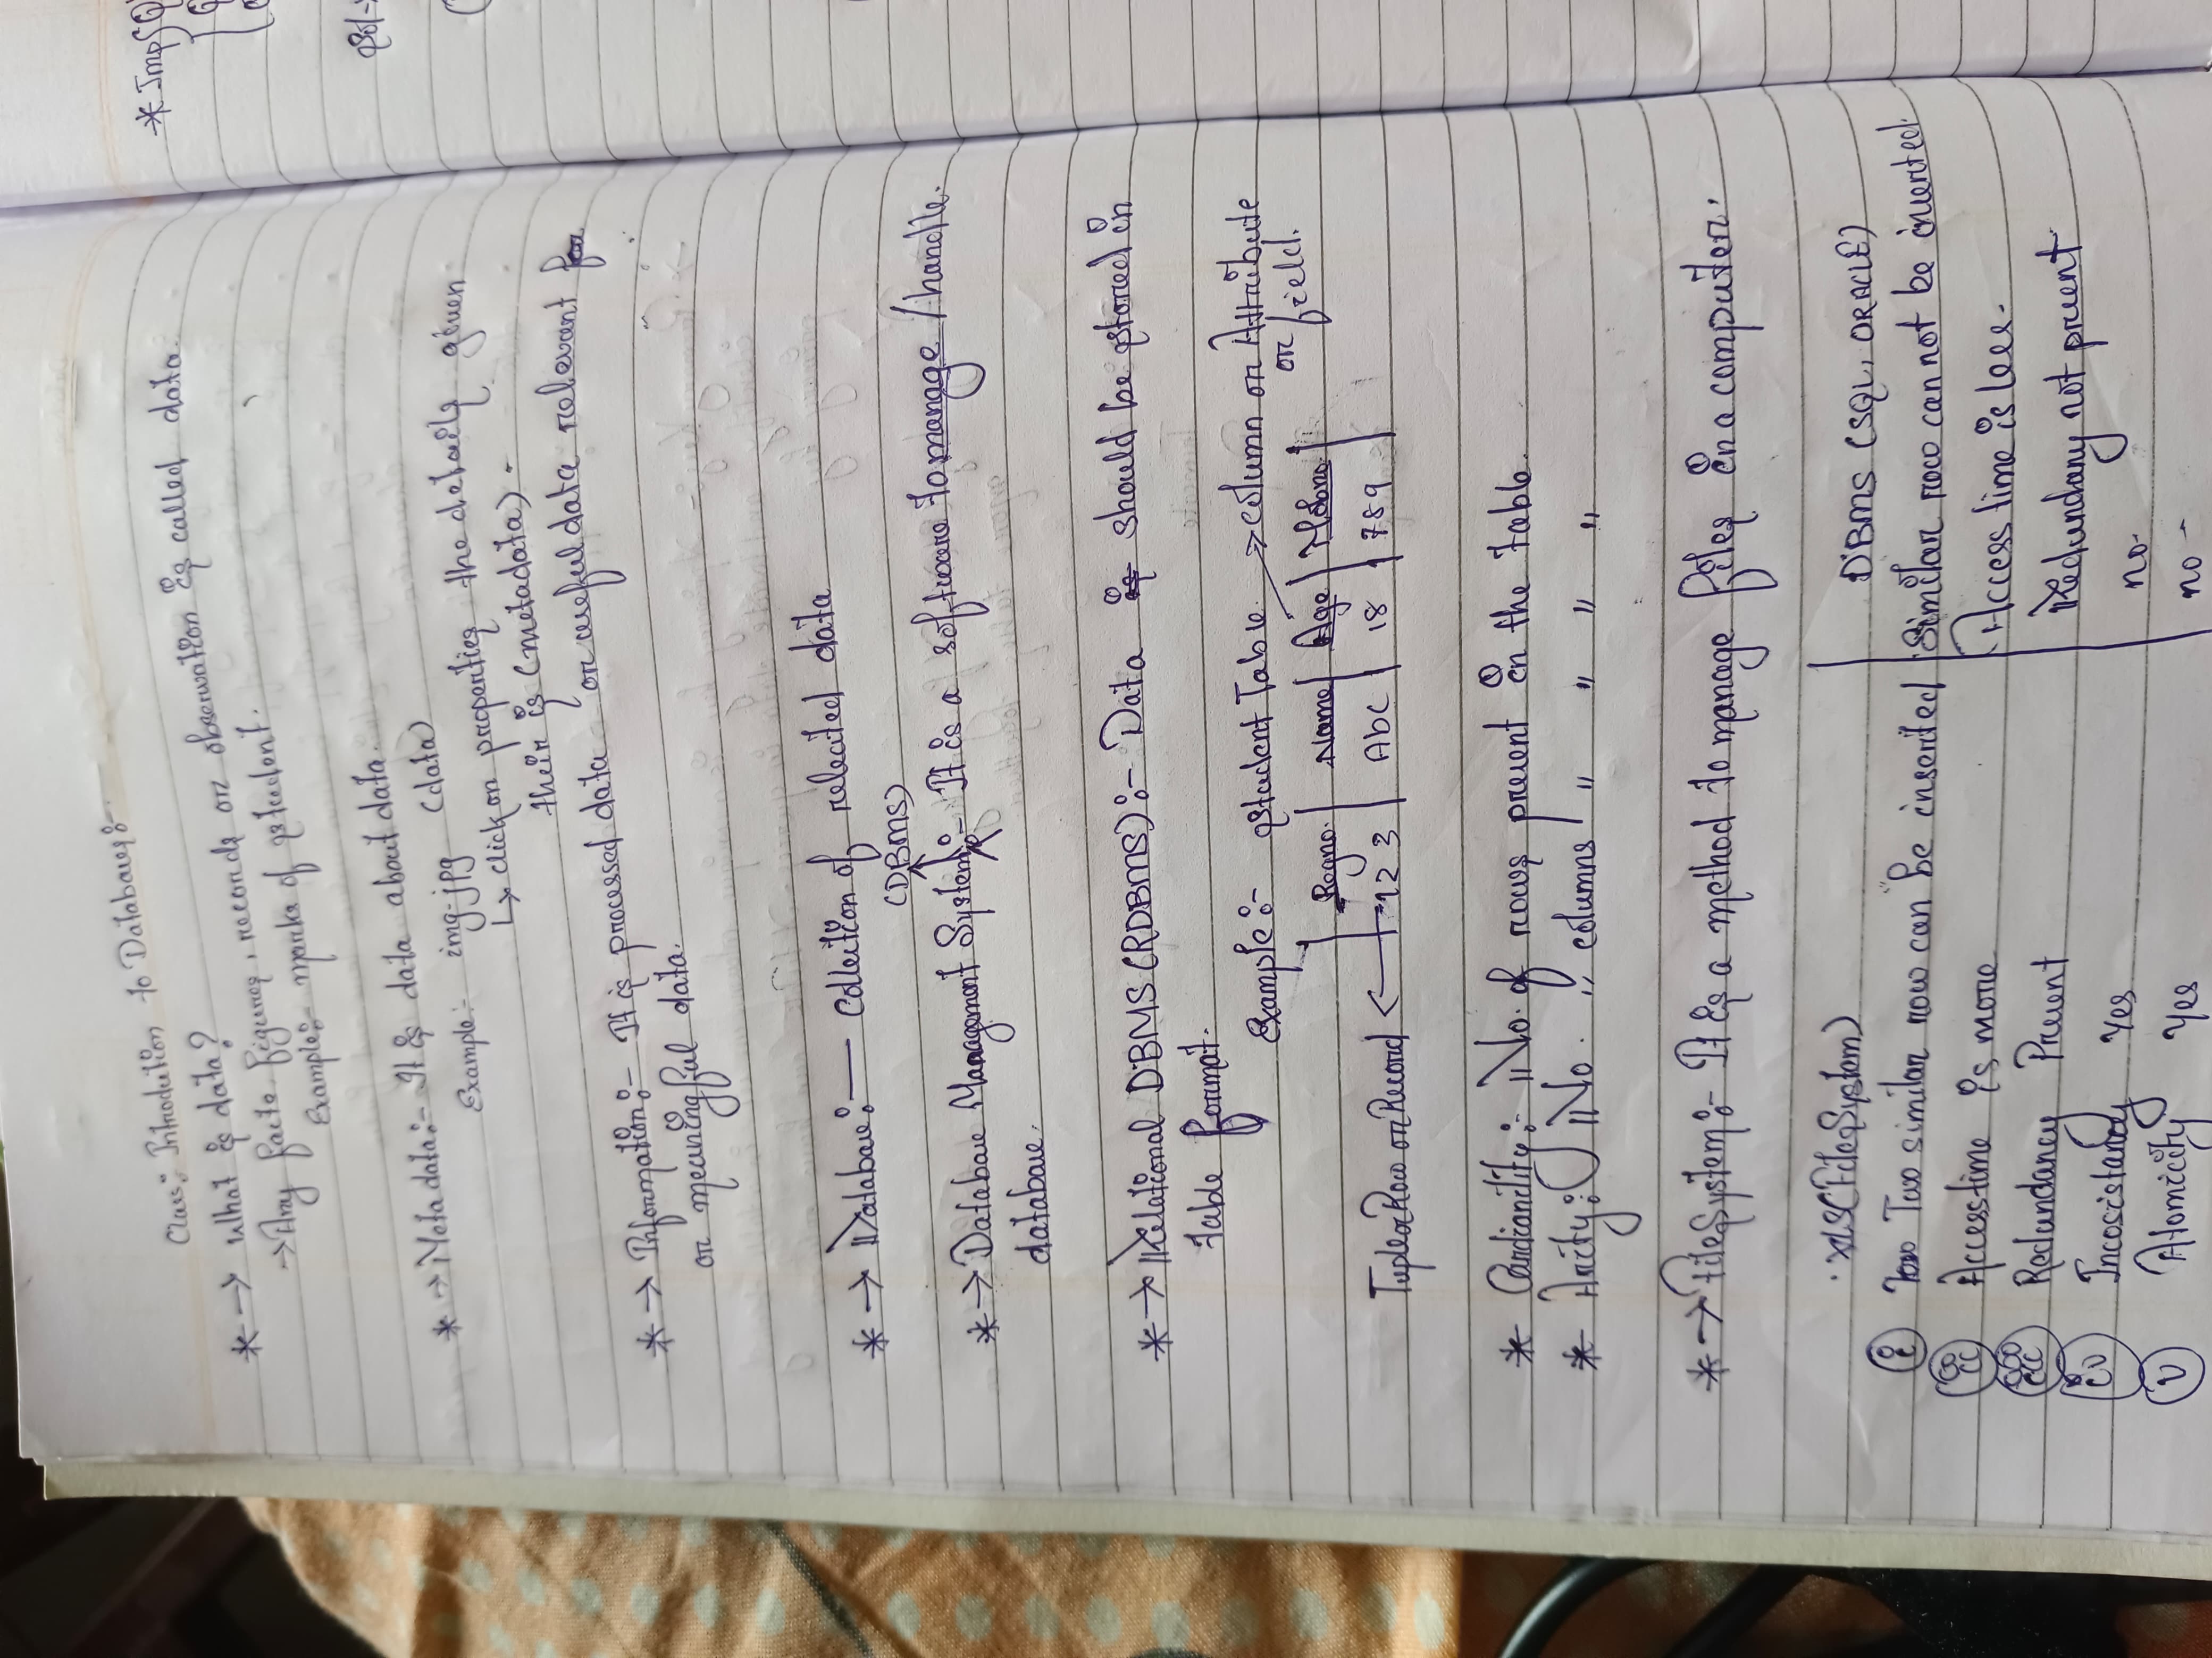 Class:- Introdution to Databases:-
* → What is data?
→ Any facts, figures, records or observation is called data.
Example:- marks of student.
* → Metadata:- It is data about data.
Example:- img.jpg (data)
↳ click on properties the details given
their is (metadata).
* → Information:- It is processed data or useful data relevant for
or meaningful data.
* → Database:— Collection of related data
(DBMS)
* → Database Management System:- It is a software to manage / handle.
database.
* → Relational DBMS (RDBMS):- Data is should be stored in
table format.
Example:- Student Table. → column or Attribute
or field.
Regno. | Name | Age | Mobno
Tuple or Row or Record ← 123 | Abc | 18 | 789
* Cardianility:- No. of rows present in the table.
* Arity:- No. „ columns „ „ „ „
* → FileSystem:- It is a method to manage files in a computer.
.XLS (FileSystem) | DBMS (SQL, ORACLE)
(i) Two similar row can be inserted | Similar row can not be inserted.
(ii) Access time is more | Access time is less.
(iii) Redundancy Present | Redundany not present
(iv) Incosistancy Yes | no-
(v) Atomicity Yes | no-
* Imp